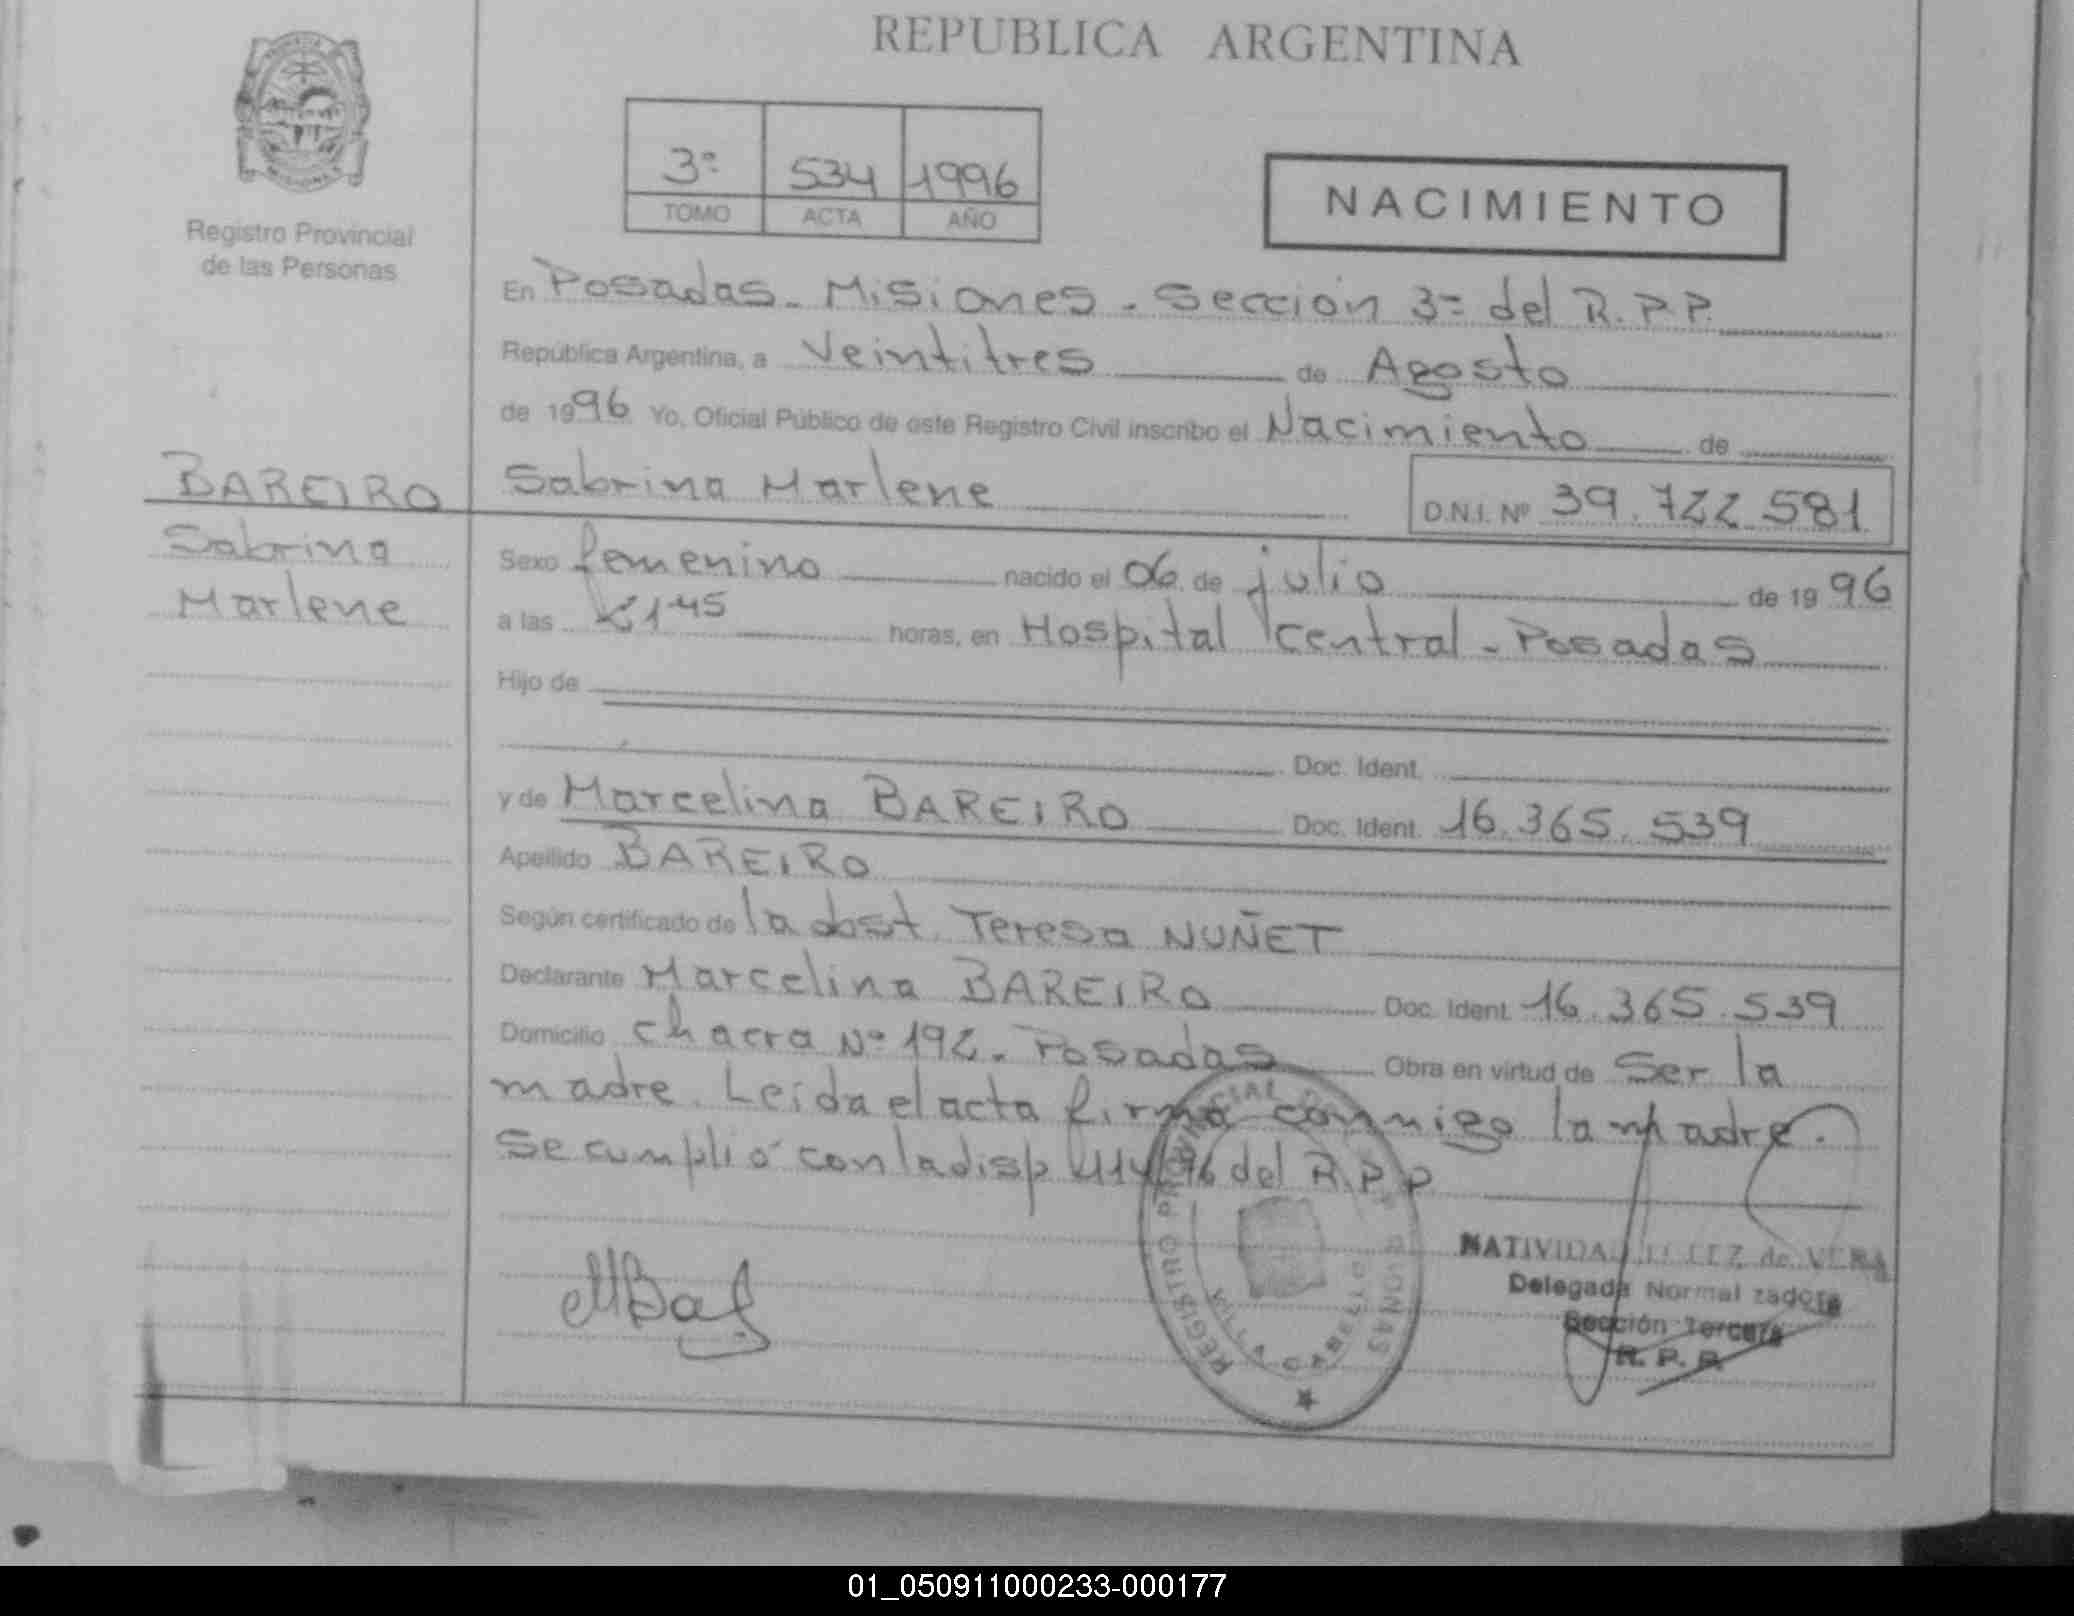 REPUBLICA ARGENTINA
MISIONES
Registro Provincial
de las Personas
3ª 534 1996
TOMO ACTA AÑO
NACIMIENTO
En Posadas - Misiones - Sección 3ª del R.P.P.
República Argentina, a Veintitres de Agosto
de 1996 Yo, Oficial Público de este Registro Civil inscribo el Nacimiento de
BAREIRO
Sabrina
Marlene
Sabrina Marlene D.N.I. Nº 39.722.581
Sexo femenino nacido el 06 de julio de 1996
a las 21 45 horas, en Hospital Central - Posadas
Hijo de
Doc. Ident.
y de Marcelina BAREIRO Doc. Ident. 16.365.539
Apellido BAREIRO
Según certificado de la obst. Teresa NUÑET
Declarante Marcelina BAREIRO Doc. Ident. 16.365.539
Domicilio chacra Nº 192. Posadas Obra en virtud de Ser la
madre. Leída el acta firma conmigo la madre.
Se cumplió con la disp 96 del R.P.P
MBa
REGISTRO PROVINCIAL
VILLA CABELLO
NATIVIDAD de VERA
Delegada Normalizadora
Sección Tercera
R. P. P.
01_050911000233-000177